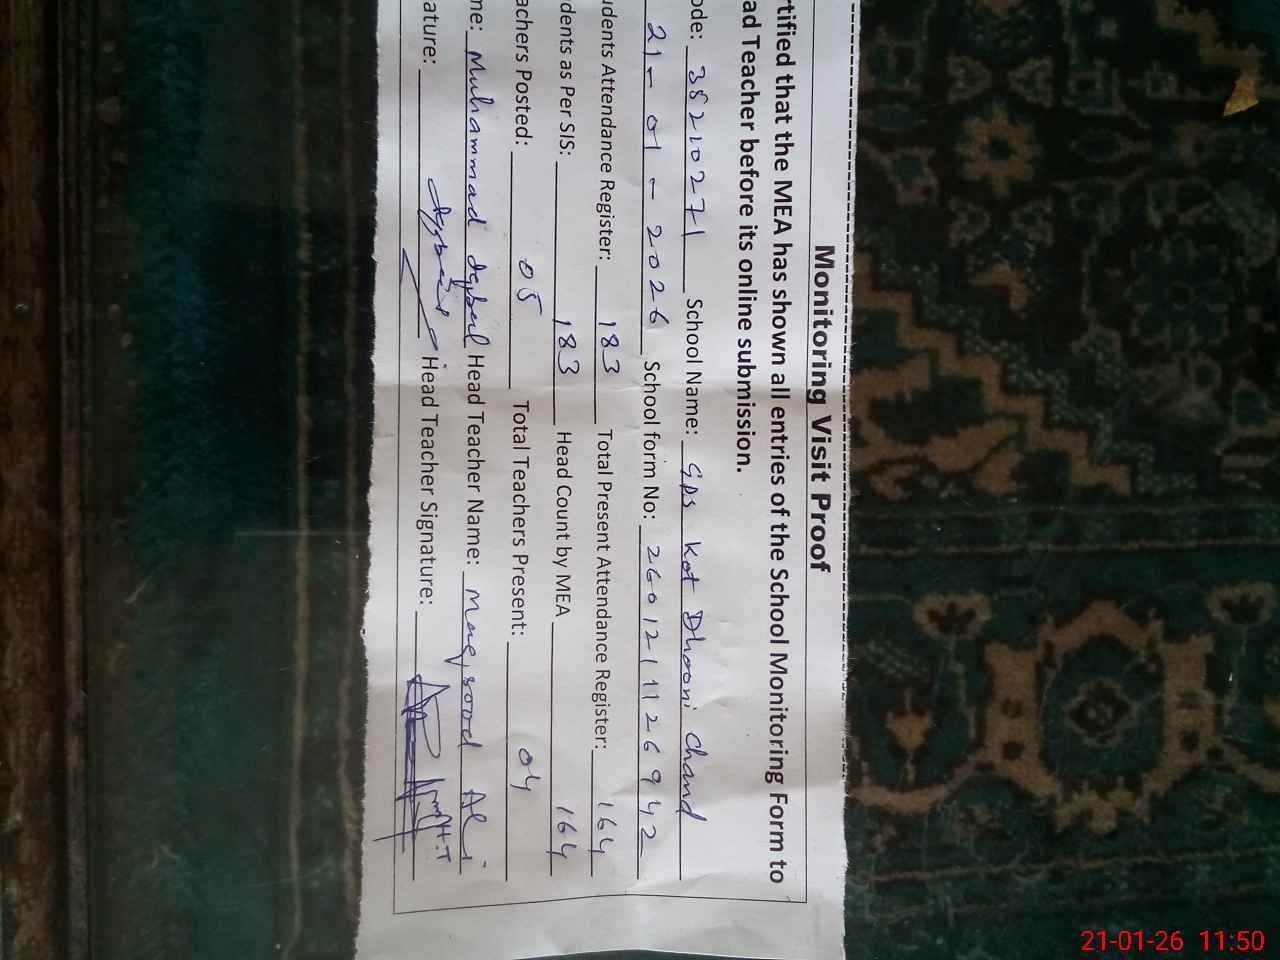 Monitoring Visit Proof
rtified that the MEA has shown all entries of the School Monitoring Form to
ad Teacher before its online submission.
ode: 35210271 School Name: GPS Kot Dhooni Chand
21-01-2026 School form No: 2601211126942
udents Attendance Register: 183 Total Present Attendance Register: 164
dents as Per SIS: 183 Head Count by MEA 164
achers Posted: 05 Total Teachers Present: 04
me: Muhammad Iqbal Head Teacher Name: Maqsood Ali
ature: Head Teacher Signature: H.T
21-01-26 11:50